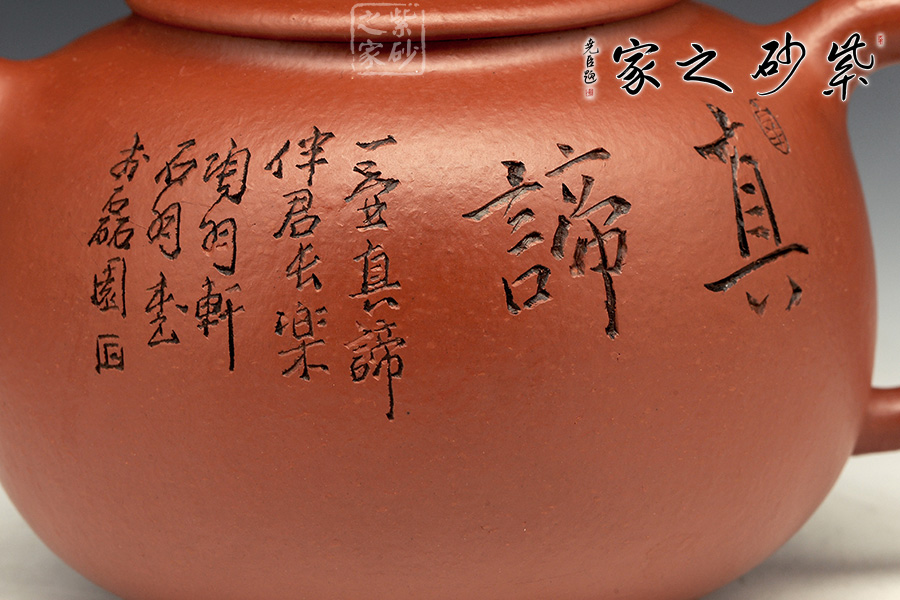 紫砂之家
紫砂之家
尧臣題
真
諦
一壺真諦
伴君長樂
陶羽軒
石羽書
於磊園